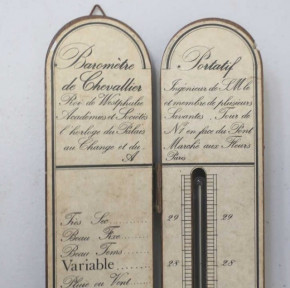 Baromètre
de Chevallier
Roi de Westphalie
Academies et Sociétés
l'horloge du Palais
au Change et du
A
Très Sec
Beau Fixe
Beau Tems
Variable
Pluie ou Vent
Portatif
Ingénieur de S.M. le
et membre de plusieurs
Savantes, Tour de
N°1 en face du Pont
Marché aux Fleurs
Paris
29 29
28 28